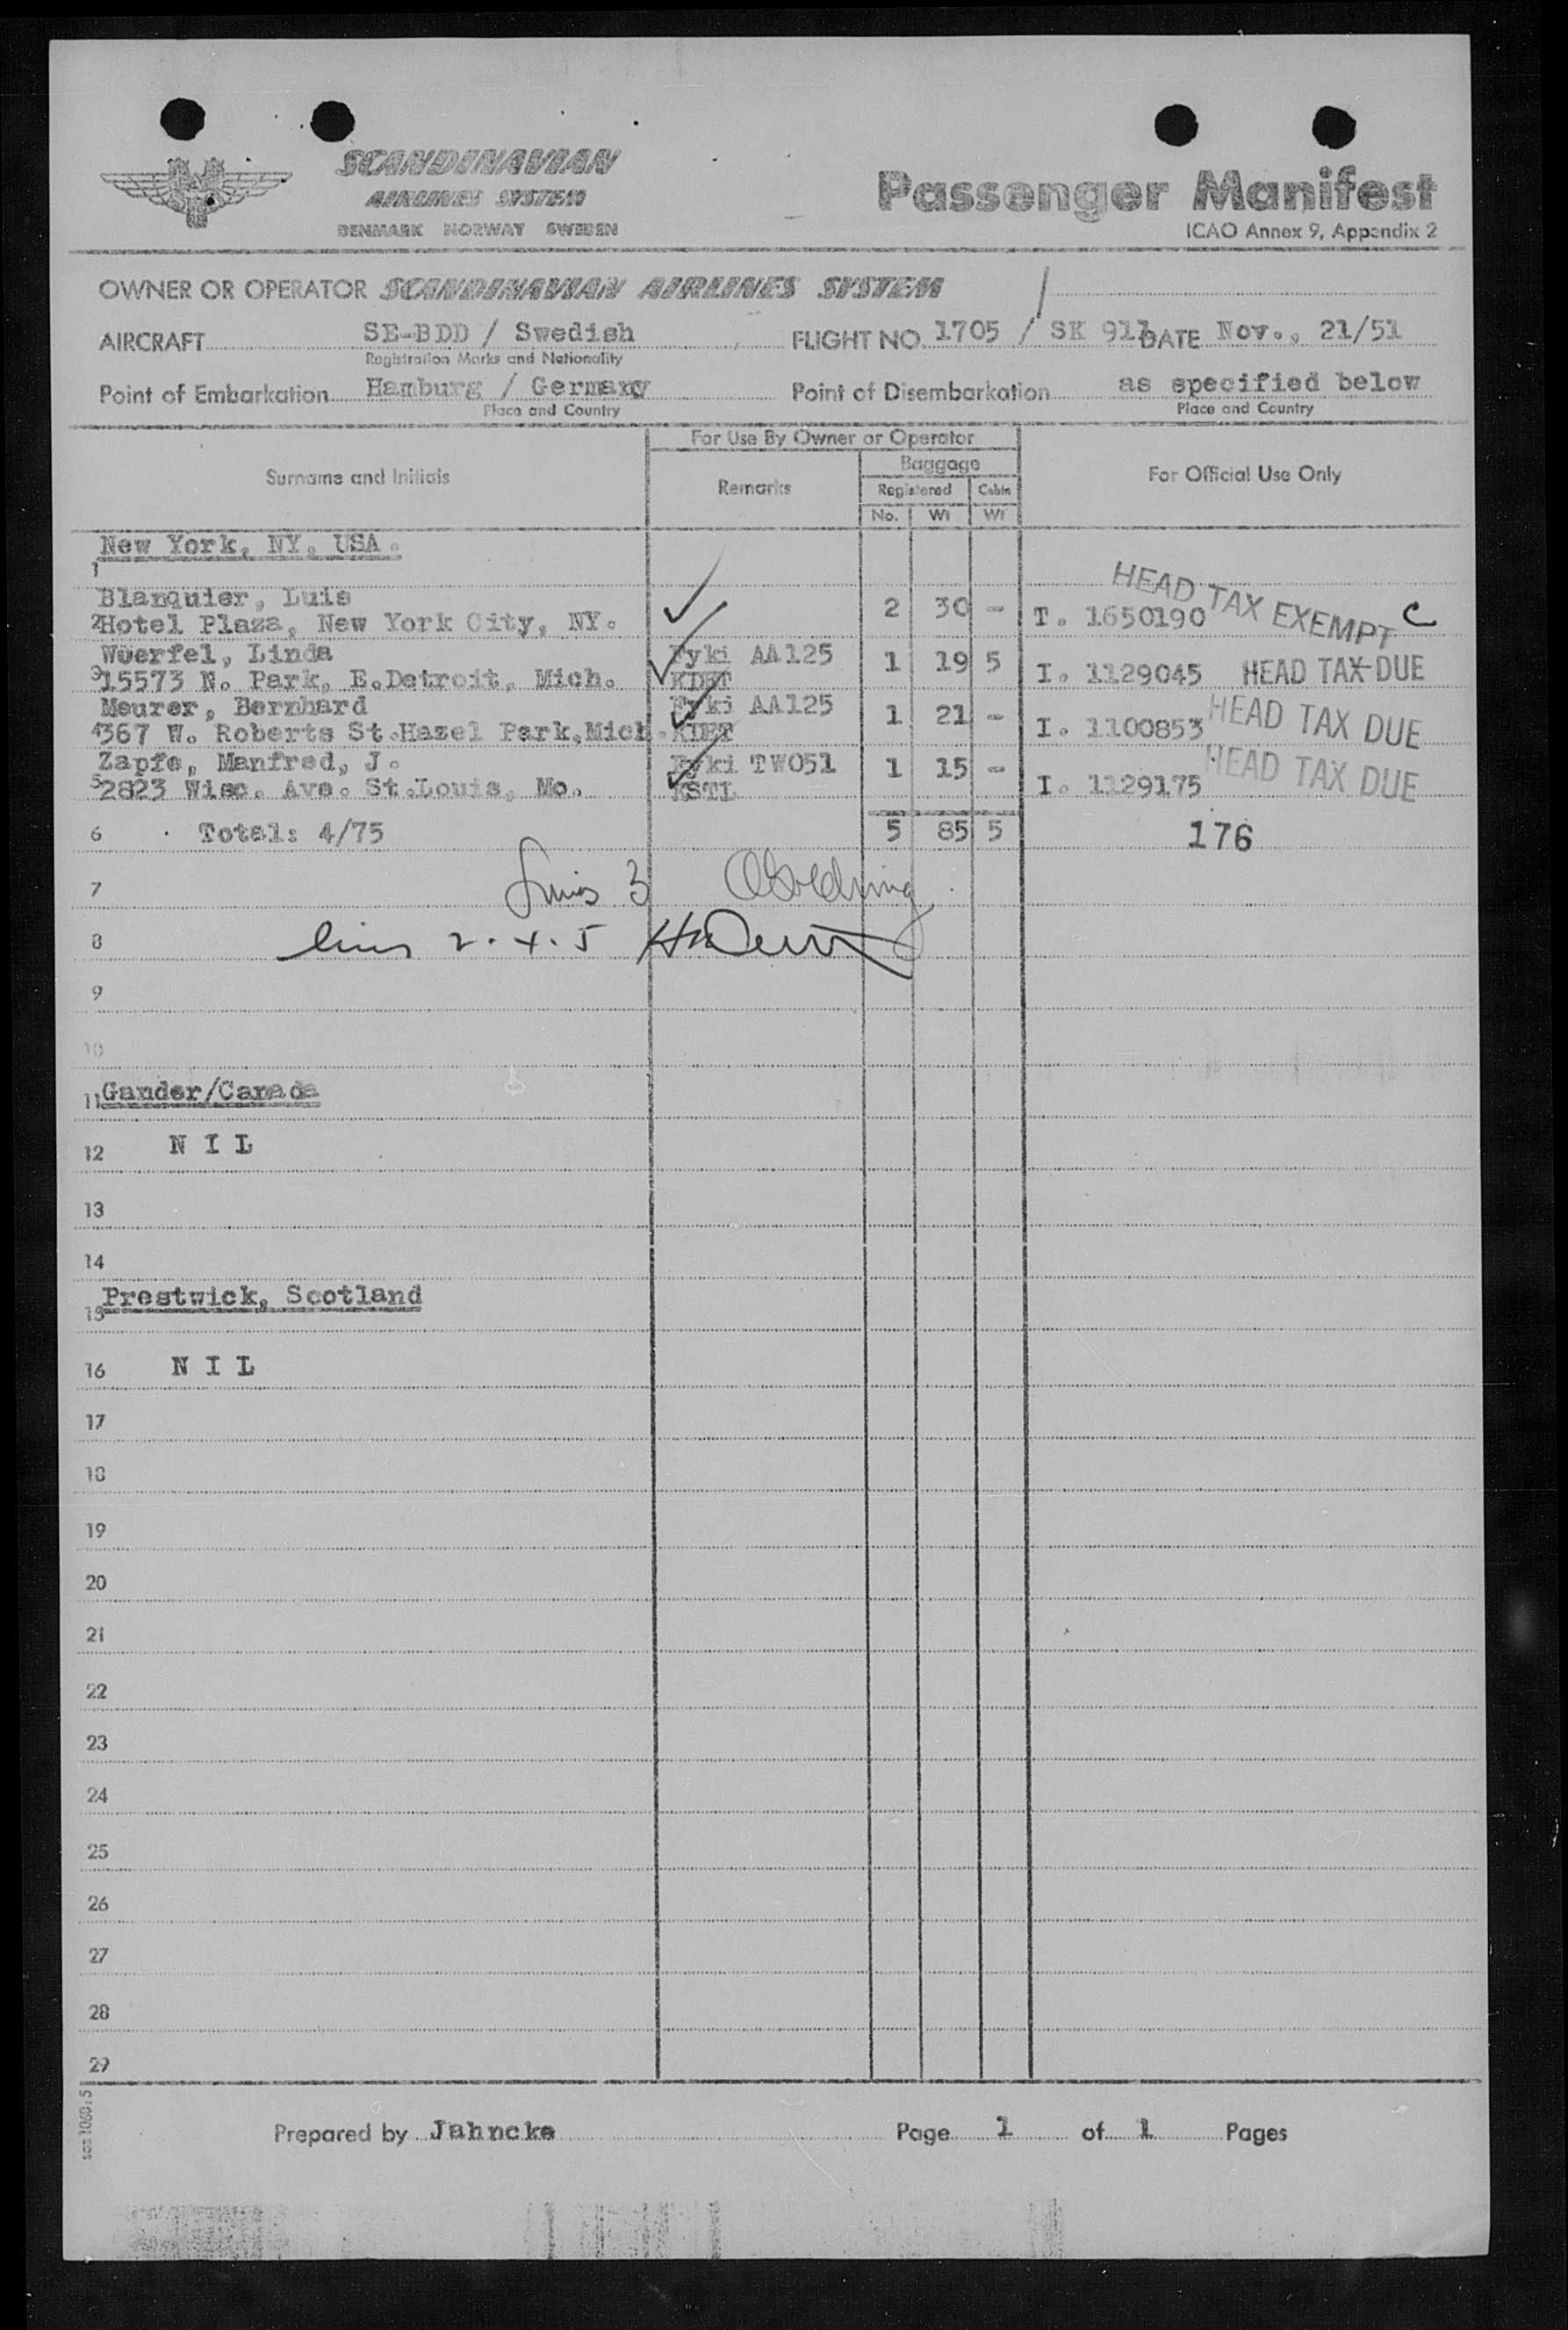 SCANDINAVIAN
AIRLINES SYSTEM
DENMARK NORWAY SWEDEN
Passenger Manifest
ICAO Annex 9, Appendix 2
OWNER OR OPERATOR SCANDINAVIAN AIRLINES SYSTEM
AIRCRAFT SE-BDD / Swedish FLIGHT NO. 1705 / SK 911 DATE Nov., 21/51
Registration Marks and Nationality
Point of Embarkation Hamburg / Germany Point of Disembarkation as specified below
Place and Country Place and Country
For Use By Owner or Operator
Surname and Initials Remarks Baggage For Official Use Only
Registered Cabin
No. Wt Wt
New York, NY, USA.
1
Blanquier, Luis 2 30 - T. 1650190 HEAD TAX EXEMPT C
2 Hotel Plaza, New York City, NY.
Wuerfel, Linda Fyki AA125 1 19 5 I. 1129045 HEAD TAX DUE
3 15573 N. Park, E.Detroit, Mich.
Meurer, Bernhard Fyki AA125 1 21 - I. 1100853 HEAD TAX DUE
4 367 W. Roberts St.Hazel Park,Mich.
Zapfe, Manfred, J. Fyki TW051 1 15 - I. 1129175 HEAD TAX DUE
5 2823 Wisc. Ave. St.Louis, Mo. KSTL
6 Total: 4/75 5 85 5 176
7 3
8 lines 2.4.5
9
10
11 Gander/Canada
12 N I L
13
14
15 Prestwick, Scotland
16 N I L
17
18
19
20
21
22
23
24
25
26
27
28
29
sas 1060:5
Prepared by Jahncke Page 1 of 1 Pages